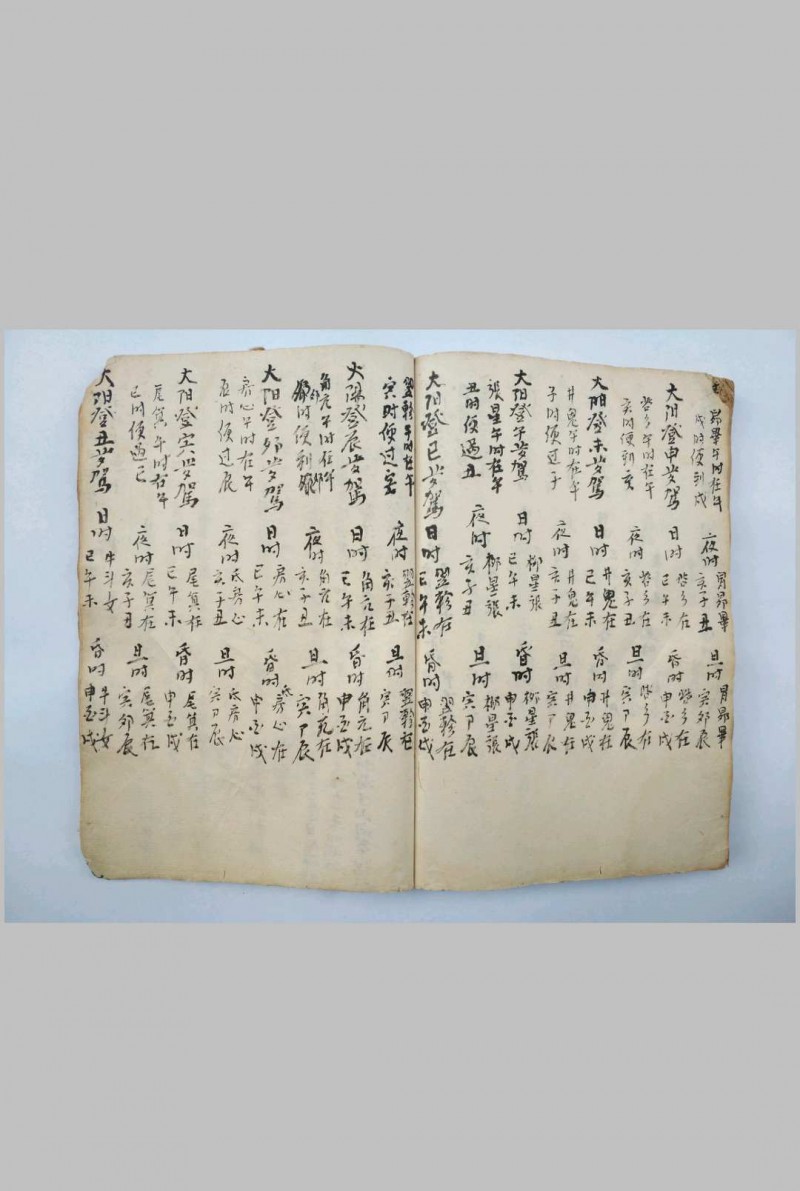 昴畢午时在午 胃昴畢 胃昴畢
戌时便到戌 夜时亥子丑 旦时寅卯辰
大阳登申岁驾 觜参在 觜参在
日时巳午未 昏时申酉戌
觜参午时在午 觜参在 觜参在
亥时便到亥 夜时亥子丑 旦时寅卯辰
大阳登未岁驾 井鬼在 井鬼在
日时巳午未 昏时申酉戌
井鬼午时在午 井鬼在 井鬼在
子时便过子 夜时亥子丑 旦时寅卯辰
大阳登午岁驾 柳星張 柳星張
日时巳午未 昏时申酉戌
張星午时在午 柳星張 柳星張
丑时便過丑 夜时亥子丑 旦时寅卯辰
大阳登巳岁驾 翌軫在 翌軫在
日时巳午未 昏时申酉戌
翌軫午时在午 翌軫在 翌軫在
寅时便过寅 夜时亥子丑 旦时寅卯辰
大陽登辰岁驾 角亢在 角亢在
日时巳午未 昏时申酉戌
角亢午时在午 角亢在 角亢在
卯时便到卯 夜时亥子丑 旦时寅卯辰
大阳登卯岁驾 房心在 氐房心在
日时巳午未 昏时申酉戌
房心午时在午 氐房心 氐房心
辰时便过辰 夜时亥子丑 旦时寅卯辰
大阳登寅岁驾 尾箕在 尾箕在
日时巳午未 昏时申酉戌
尾箕午时在午 尾箕在 尾箕在
巳时便過巳 夜时亥子丑 旦时寅卯辰
大阳登丑岁驾 牛斗女 牛斗女
日时巳午未 昏时申酉戌